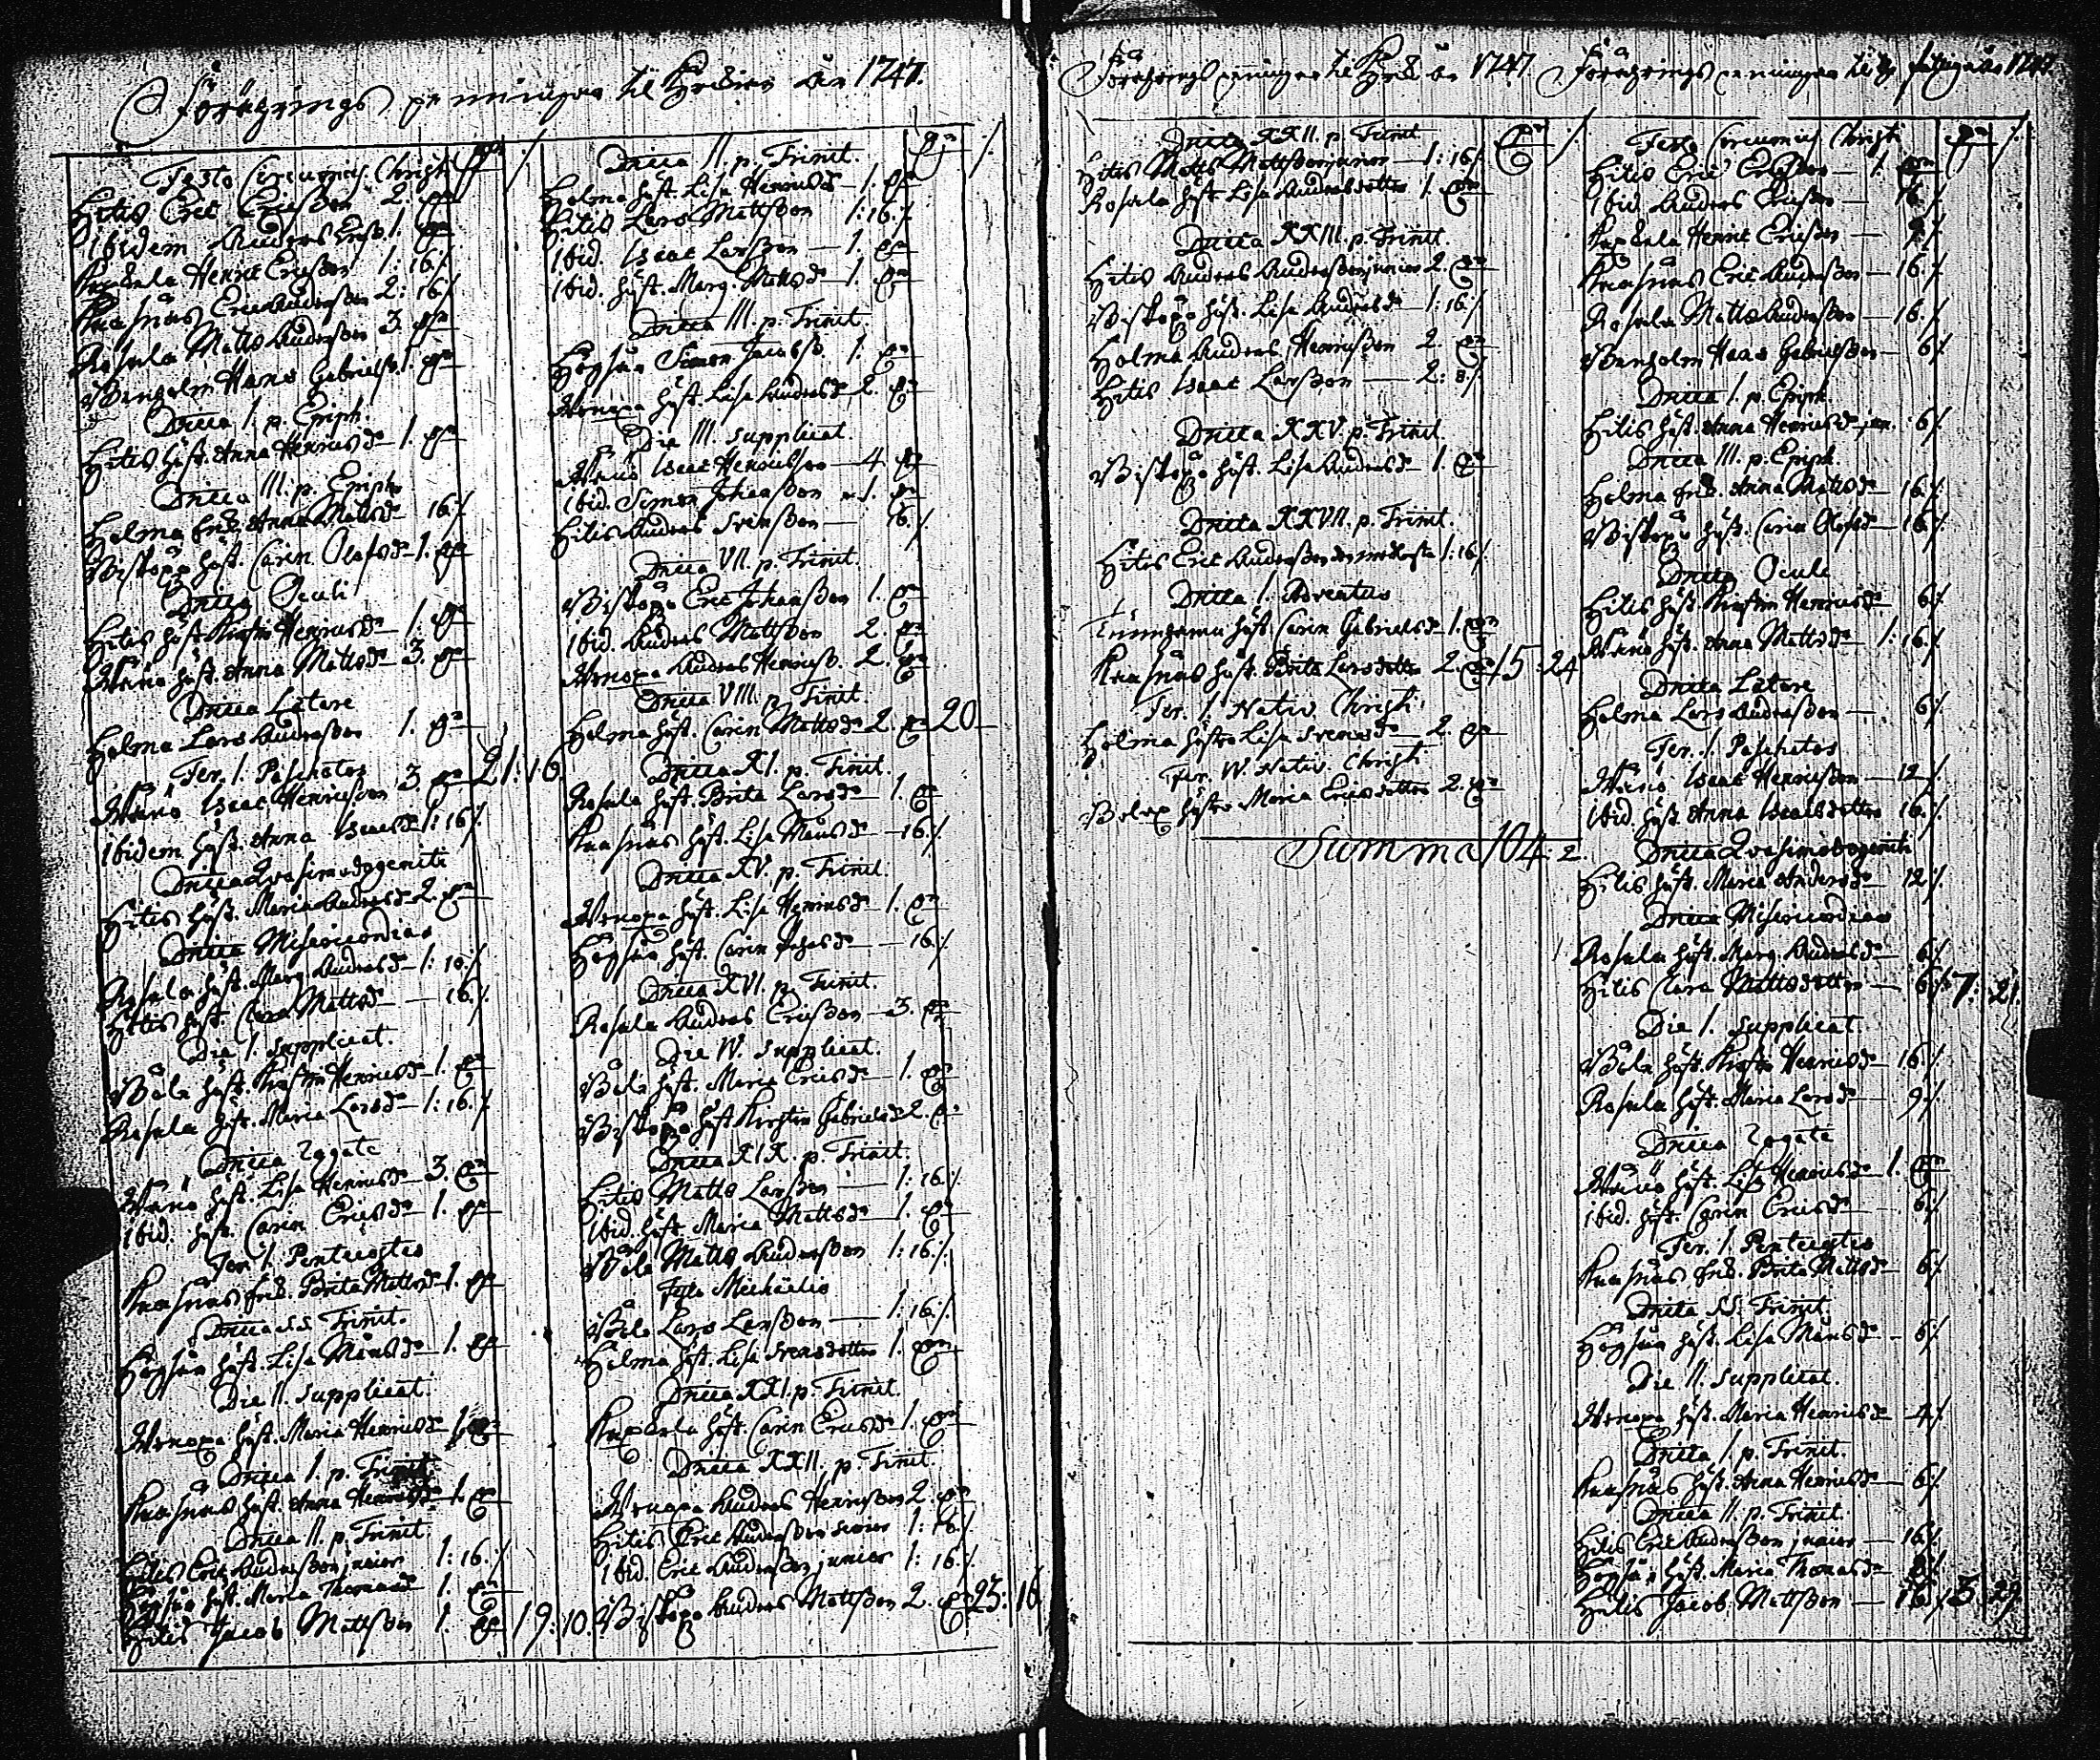 Förährings penningar til Kyrckian åhr 1747.
Festo Circumcis. Christi
Hitis Eric Ericsson 2.
Ibidem Anders Ericss. 1.
Hendric Ericsson 1:16
Kasnäs Eric Andersson 2:16
Rosala Matts Andersson 3.
Hans Gabrielss. 1.
Dnica I. p. Epiph.
Hitis hust. Anna Henricsdr 1.
Dnica III. p. Epiph.
Holma Anna Mattsdr 16
Biskopö hust. Carin Olofsdr 1.
Dnica Oculi
Hitis hust. Kirstin Henricsdr 1.
Wänö hust. Anna Mattsdr 3.
Dnica Lætare
Holma Lars Andersson 1.
Fer. I. Paschatos
Wänö Isaac Henricsson 3. 21:16.
Ibidem hust. Anna Isacsdr 1:16
Dnica Qvasimodogeniti
Hitis hust. Maria Andersdr 2.
Dnica Misericordias
Rosala hust. Marg. Andersdr 1:10
Hitis hust. Clara Mattsdr 16.
Die I. supplicat.
Böle hust. Kirstin Henricsdr 1.
Rosala hust. Maria Larsdr 1:16.
Dnica Rogate
Wänö hust. Lisa Henricsdr 3.
Ibid. hust. Carin Ericsdr 1.
Fer. I. Pentecostes
Kasnäs Brita Mattsdr 1.
Dnica S.S. Trinit.
Högsår hust. Lisa Månsdr 1.
Die II. supplicat.
hust. Maria Henricsdr 1.
Dnica I. p. Trinit.
Kasnäs hust. Anna Henricsdr 1.
Dnica II. p. Trinit.
Hitis Eric Andersson junior 1:16.
Högsår hust. Maria Thomasdr 1.
Hitis Jacob Mattsson 1. 19:10.
Dnica II. p. Trinit.
Holma hust. Lisa Henricsdr 1.
Hitis Lars Mattsson 1:16.
Ibid. Isaac Larsson 1.
Ibid. hust. Marg. Mattsdr 1.
Dnica III. p. Trinit.
Högsår Simon Jacobss. 1.
hust. Lisa Andersdr 2.
Die III. supplicat.
Wänö Isaac Henricsson 4
Ibid. Simon Johansson 1.
Hitis Anders Svensson 16.
Dnica VII. p. Trinit.
Biskopö Eric Johansson 1.
Ibid. Anders Mattsson 2.
Anders Henricss. 2.
Dnica VIII. p. Trinit.
Holma hust. Carin Mattsdr 2. 20
Dnica XI. p. Trinit.
Rosala hust. Brita Larsdr 1.
Kasnäs hust. Lisa Månsdr 16.
Dnica XV. p. Trinit.
hust. Lisa Henricsdr 1.
Högsår hust. Carin 16.
Dnica XVI. p. Trinit.
Rosala Anders Ericsson 3.
Die IV. supplicat.
Böle hust. Maria Ericsdr 1.
Biskopö hust. Kirstin Gabrielsdr 2.
Dnica XIX. p. Trinit.
Hitis Matts Larsson 1:16.
Ibid. hust. Maria Mattsdr 1.
Böle Matts Andersson 1:16.
Festo Michaelis
Böle Lars Larsson 1:16.
Holma hust. Lisa Svensdotter 1.
Dnica XXI. p. Trinit.
hust. Carin Ericsdr 1.
Dnica XXII. p. Trinit.
Anders Henricsson 2.
Hitis Eric Andersson senior 1:16.
Ibid. Eric Andersson junior 1:16.
Biskopö Anders Mattsson 2. 23:16
Förährings penningar til Kyrck. åhr 1747
Dnica XXII. p. Trinit.
Hitis Matts Mattsson junior 1:16
Rosala hust. Lisa Andersdotter 1.
Dnica XXIII. p. Trinit.
Hitis Anders Andersson junior 2.
Biskopö hust. Lisa Andersdr 1:16.
Holma Anders Henricsson 2.
Hitis Isaac Larsson 2:8.
Dnica XXV. p. Trinit.
Biskopö hust. Lisa Andersdr 1.
Dnica XXVII. p. Trinit.
Hitis Eric Andersson 1:16.
Dnica I. Adventus
hust. Carin Gabrielsdr 1.
Kasnäs hust. Brita Larsdotter 2. 15:24
Fer. I. Nativ. Christi
Holma hustro Lisa Svensdr 2.
Fer. IV. Nativ. Christi
hustro Maria Ericsdotter 2.
Summa 104:2.
Förährings penningar til de fattiga åhr 1747
Festo Circumcis. Christi
Hitis Eric Ericsson 1.
Ibid. Anders Ericsson 16.
Henric Ericsson
Kasnäs Eric Andersson 16.
Rosala Matts Andersson 16.
Hans Gabrielsson 6.
Dnica I. p. Epiph.
Hitis hust. Anna Henricsdr jun. 6.
Dnica III. p. Epiph.
Holma Anna Mattsdr 16.
Biskopö hust. Carin Olofsdr 16.
Dnica Oculi
Hitis hust. Kirstin Henricsdr 6.
Wänö hust. Anna Mattsdr 1:16.
Dnica Lætare
Holma Lars Andersson 6.
Fer. I. Paschatos
Wänö Isaac Henricsson 12.
Ibid. hust. Anna Isacsdotter 16.
Dnica Qvasimodogeniti
Hitis hust. Maria Andersdr 12.
Dnica Misericordias
Rosala hust. Marg. Andersdr 6.
Hitis Clara Mattsdotter 6. 7:21.
Die I. supplicat.
Böle hust. Kirstin Henricsdr 16.
Rosala hust. Maria Larsdr 9.
Dnica Rogate
Wänö hust. Lisa Henricsdr 1.
Ibid. hust. Carin Ericsdr 6.
Fer. I. Pentecostes
Kasnäs Brita Mattsdr 6.
Dnica S.S. Trinit.
Högsår hust. Lisa Månsdr 6.
Die II. supplicat.
hust. Maria Henricsdr 4.
Dnica I. p. Trinit.
Kasnäs hust. Anna Henricsdr 6.
Dnica II. p. Trinit.
Hitis Eric Andersson junior 16.
Högsår hust. Maria Thomasdr 8.
Hitis Jacob Mattsson 16. 3:29.